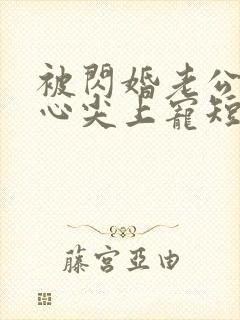 被閃婚老公
心尖上寵短
藤宮亞由